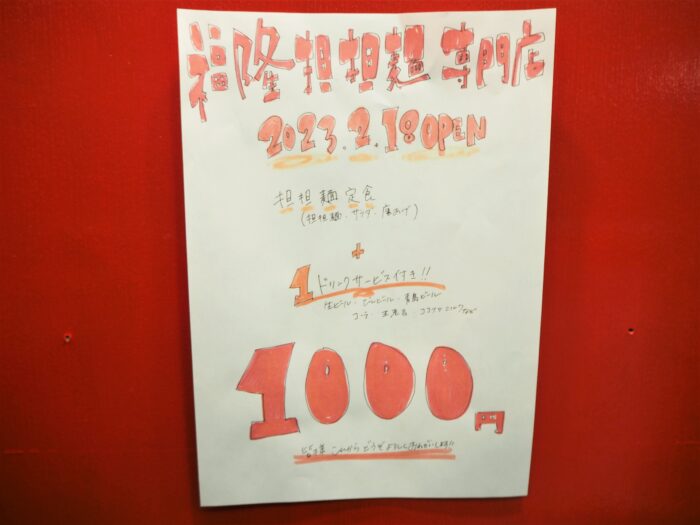 福隆担担麺専門店
2023.2.18 OPEN
担担麺定食
(担担麺・サラダ・唐あげ)
+
1ドリンクサービス付き!!
生ビール・ ビール・青島ビール
コーラ・ ・ココナッツミルクなど
1000円
皆様 これから どうぞ よろしくおねがいします!!